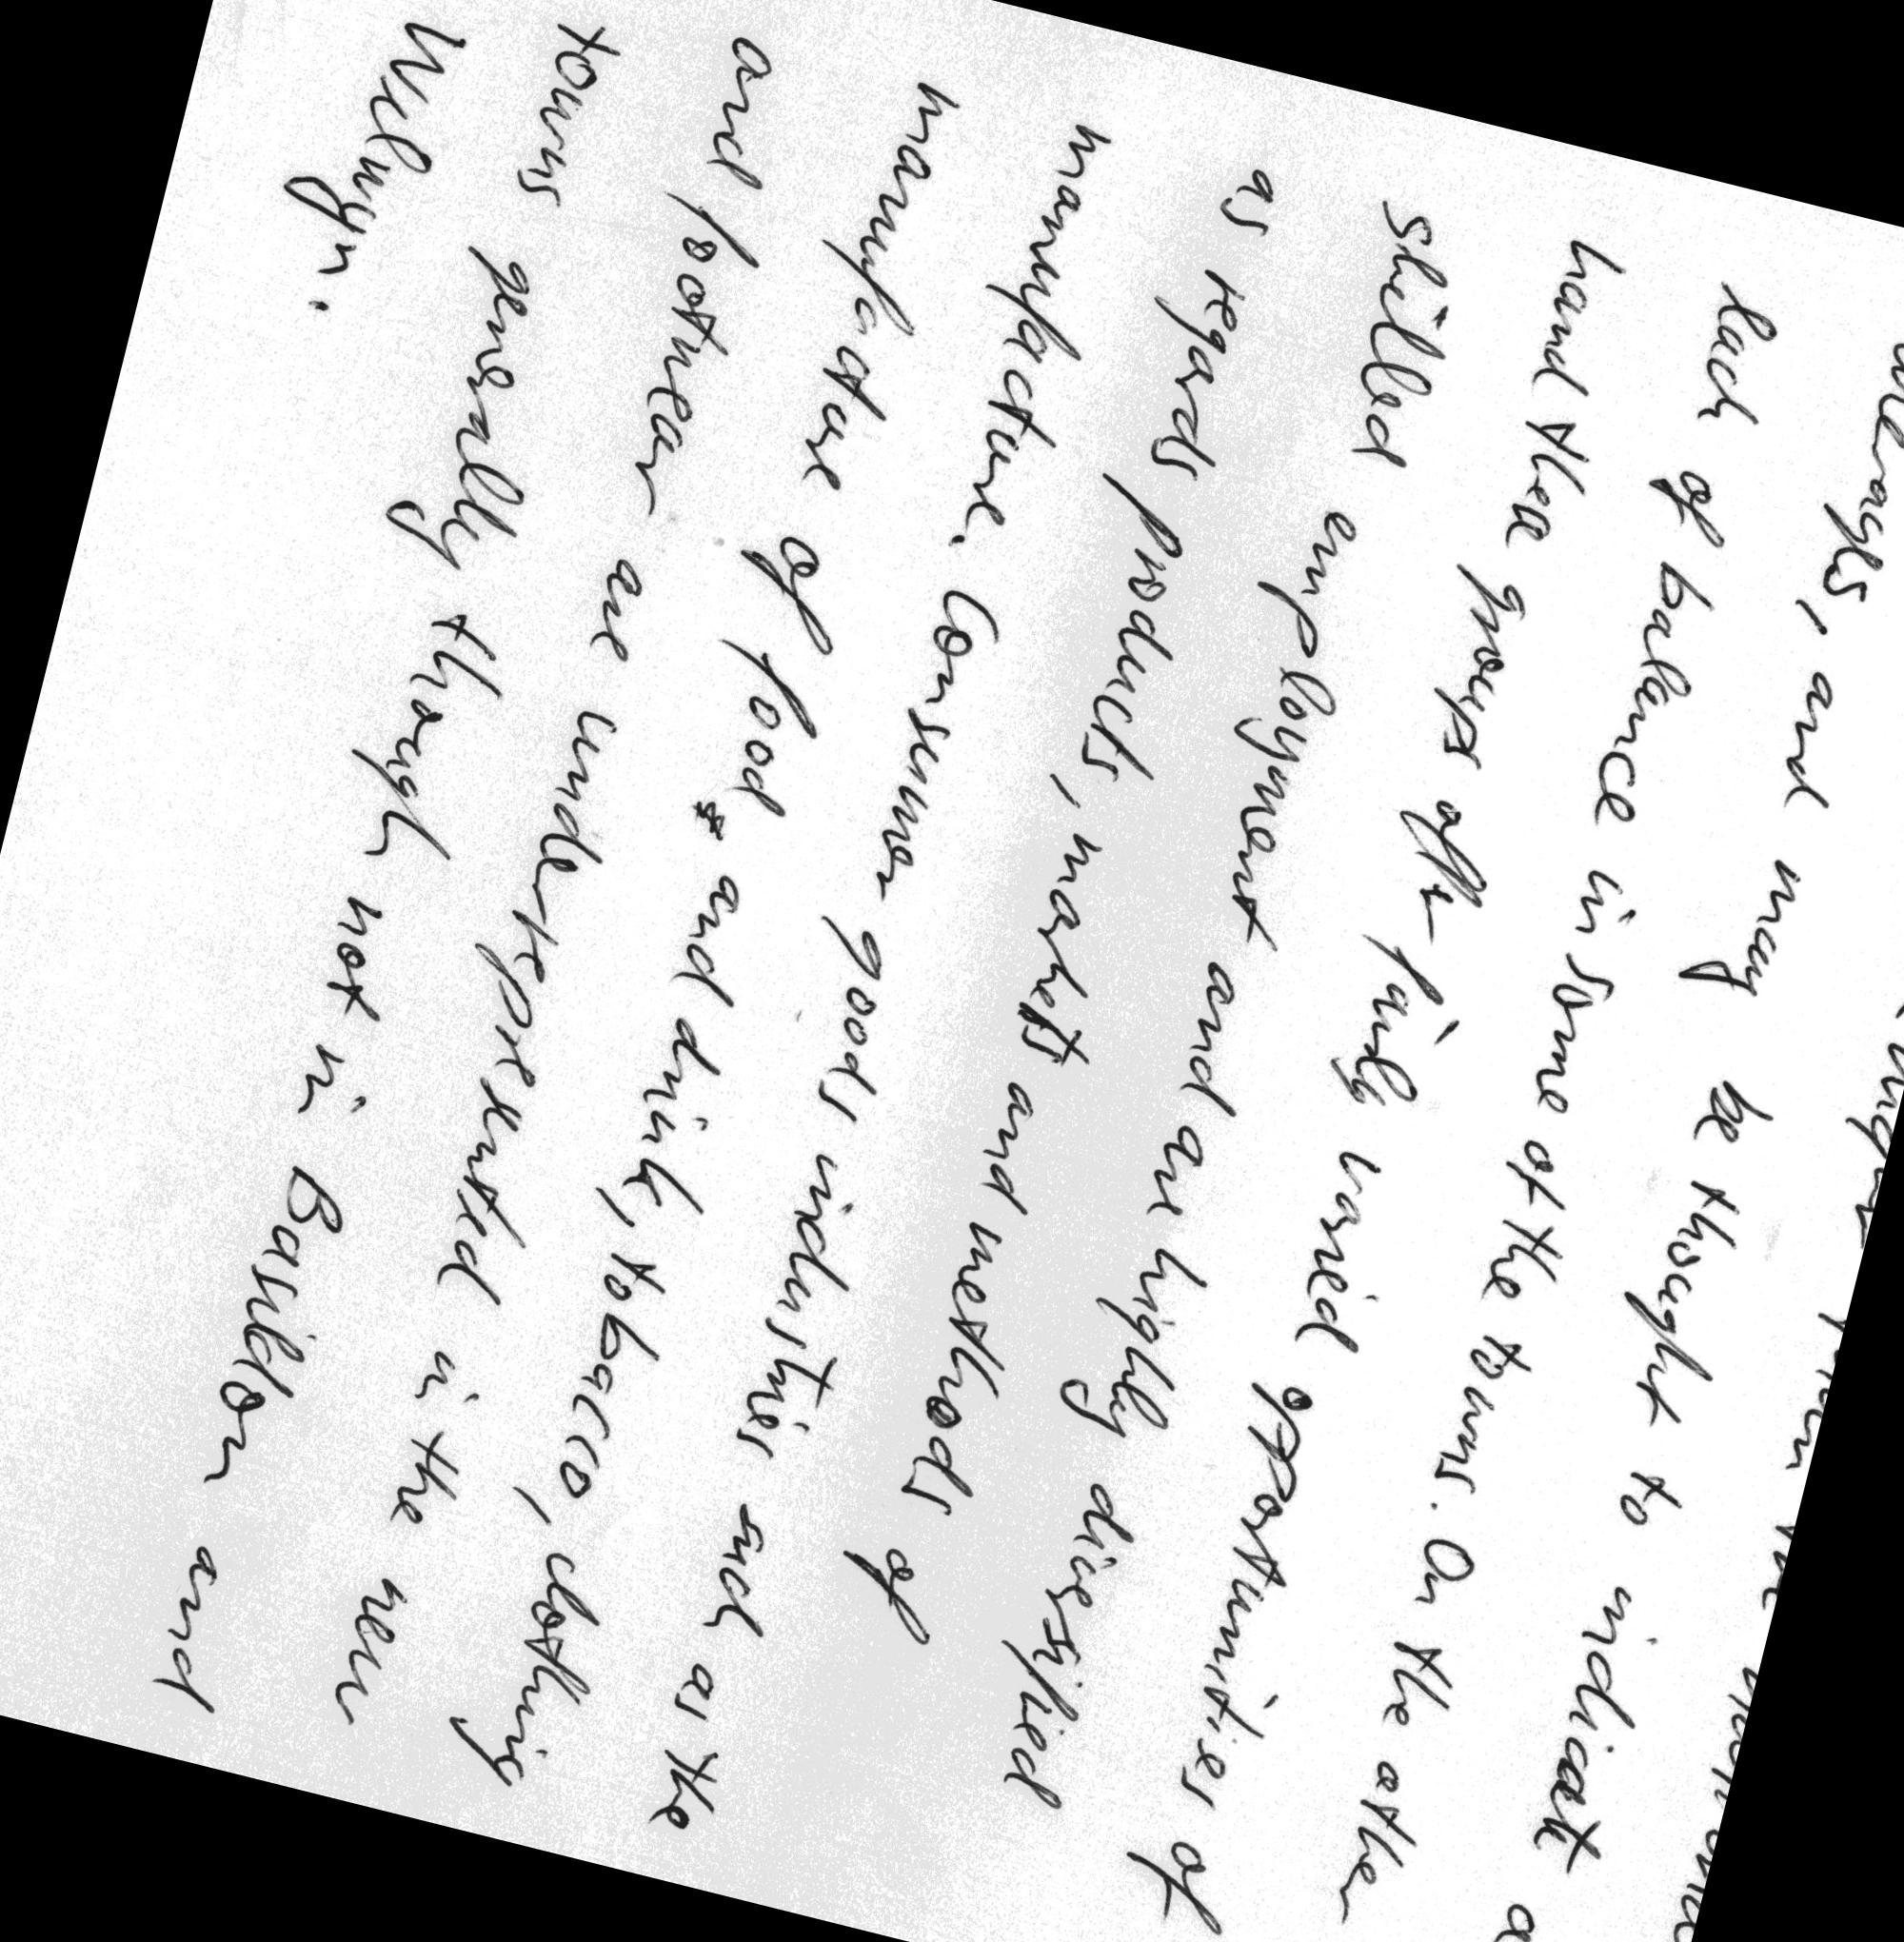 averages, and may be thought to indicate a
lack of balance in some of the towns. On the other
hand these groups offer fairly varied opportunities of
skilled employment and are highly diversified
as regards products, markets and methods of
manufacture. Consumer goods industries such as the
manufacture of food and drink, tobacco, clothing
and footwear are underrepresented in the new
towns generally though not in Basildon and
Welwyn.